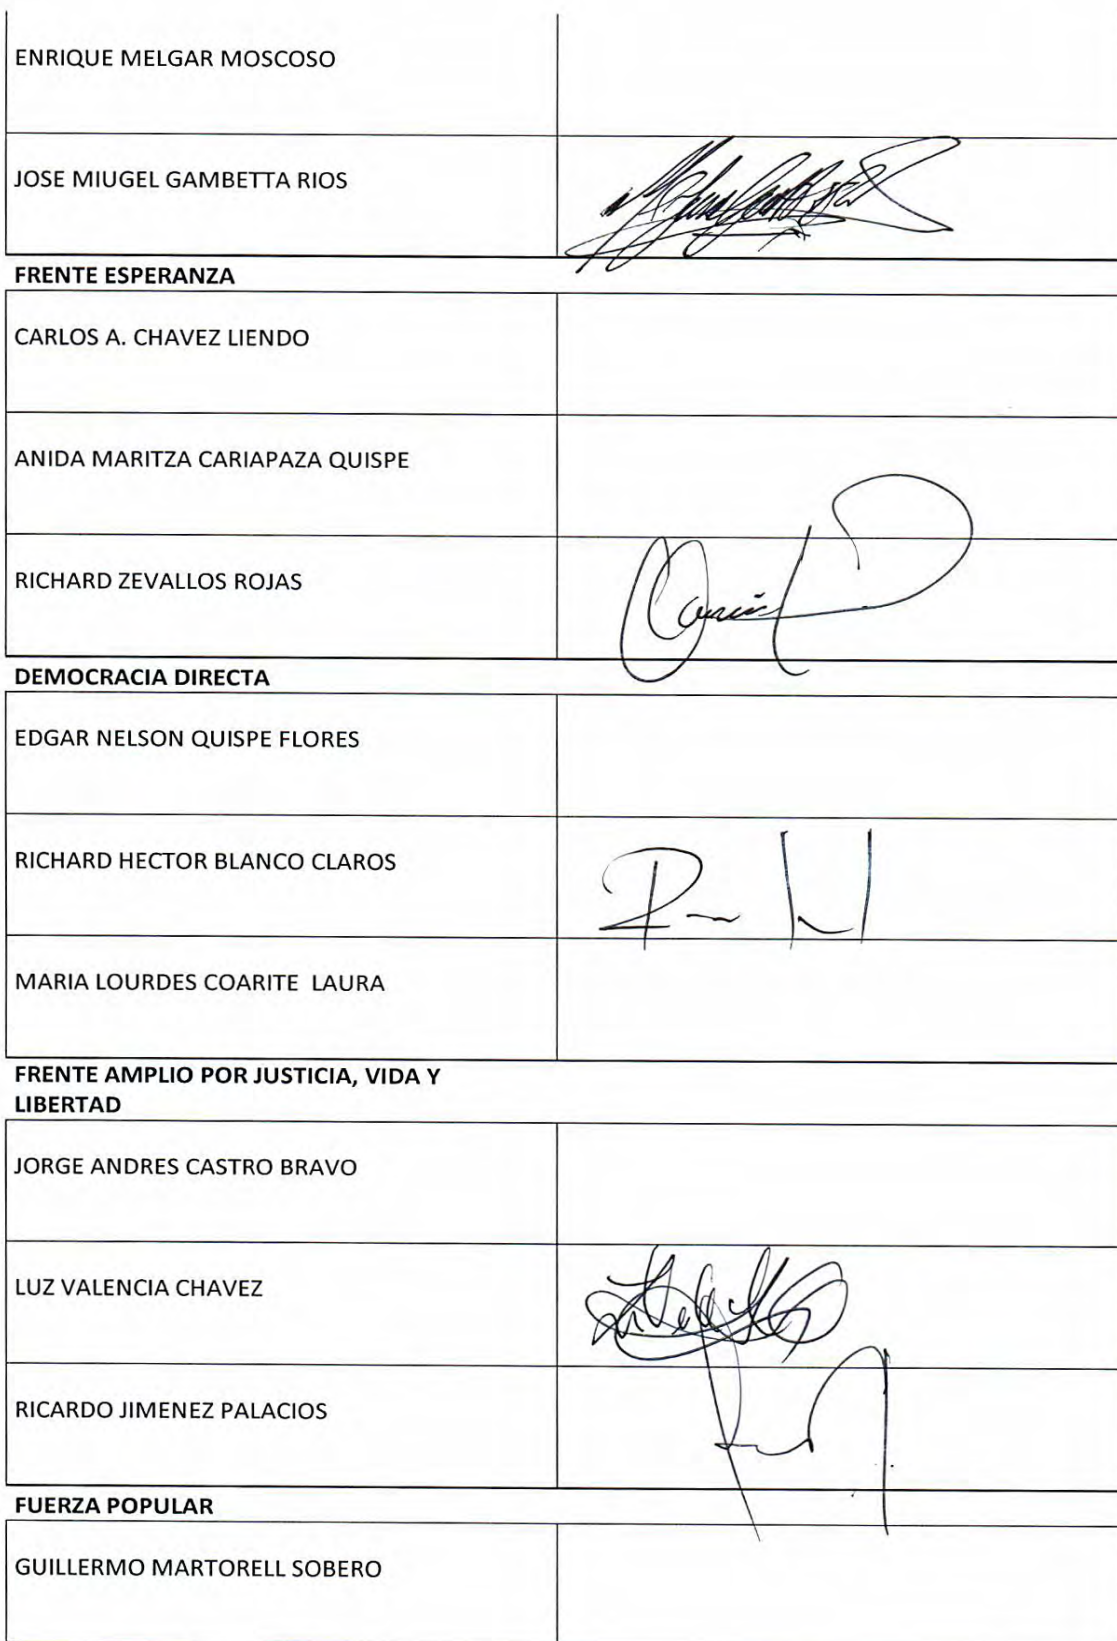 ENRIQUE MELGAR MOSCOSO
JOSE MIUGEL GAMBETTA RIOS
FRENTE ESPERANZA
CARLOS A. CHAVEZ LIENDO
ANIDA MARITZA CARIAPAZA QUISPE
RICHARD ZEVALLOS ROJAS
DEMOCRACIA DIRECTA
EDGAR NELSON QUISPE FLORES
RICHARD HECTOR BLANCO CLAROS
MARIA LOURDES COARITE LAURA
FRENTE AMPLIO POR JUSTICIA, VIDA Y
LIBERTAD
JORGE ANDRES CASTRO BRAVO
LUZ VALENCIA CHAVEZ
RICARDO JIMENEZ PALACIOS
FUERZA POPULAR
GUILLERMO MARTORELL SOBERO